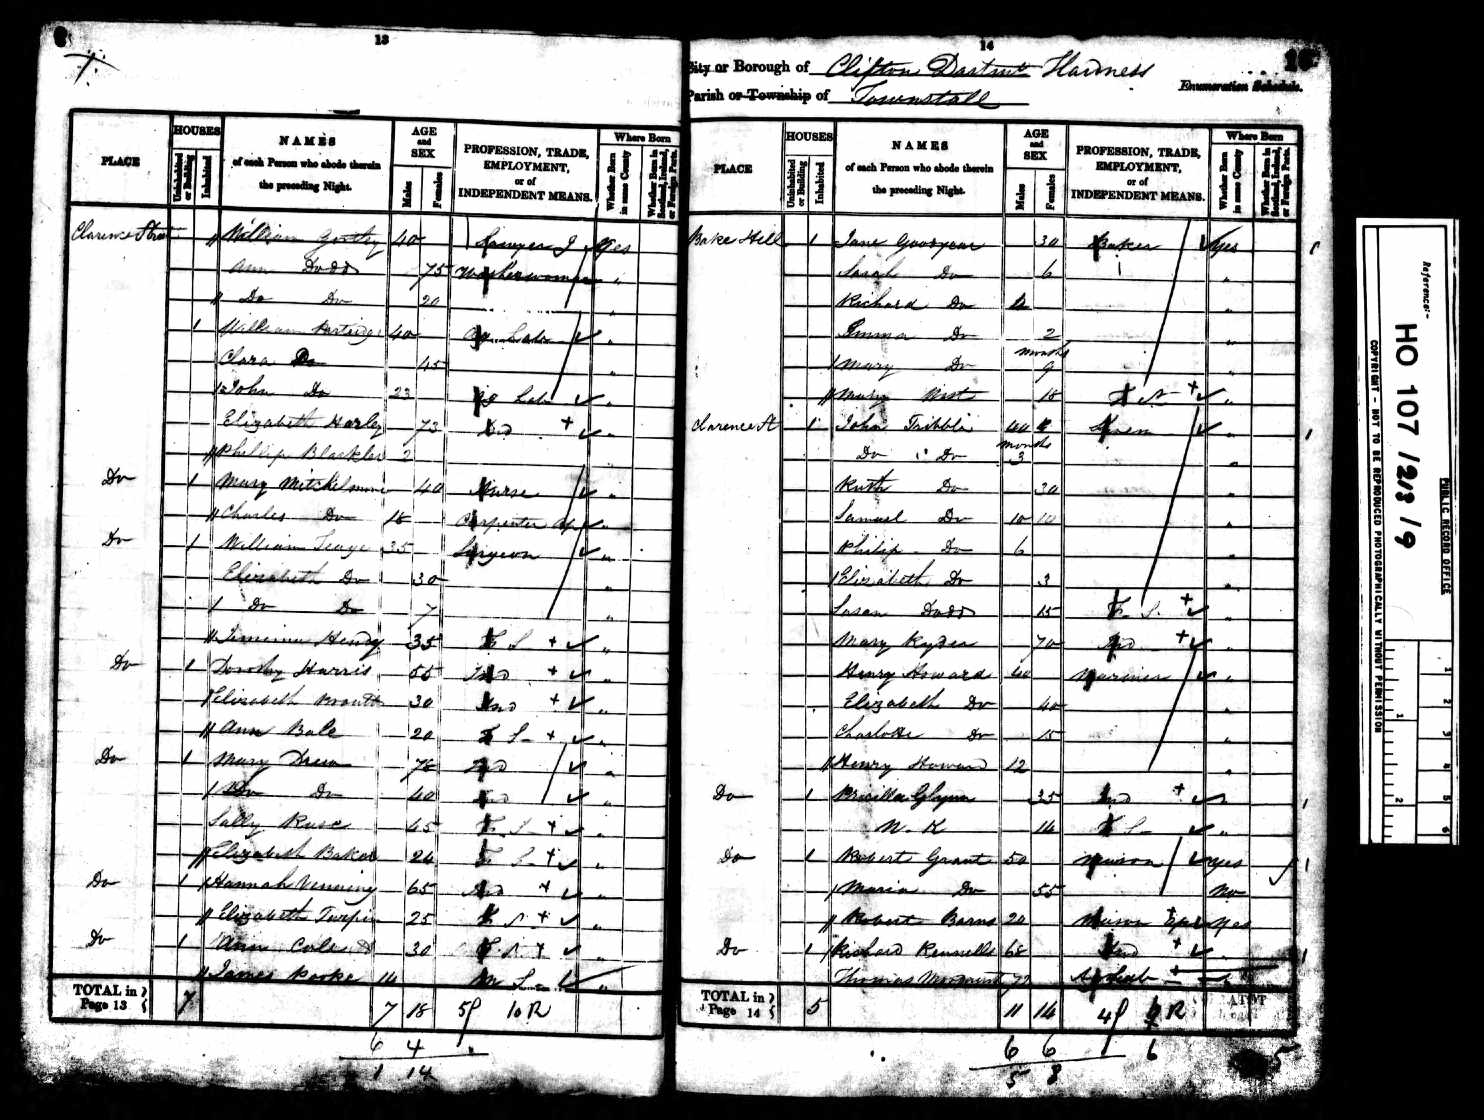 13
PLACE
HOUSES
Uninhabited or Building
Inhabited
NAMES
of each Person who abode therein
the preceding Night.
AGE
and
SEX
Males
Females
PROFESSION, TRADE,
EMPLOYMENT,
or of
INDEPENDENT MEANS.
Where Born
Whether Born in same County
Whether Born in Scotland, Ireland, or Foreign Parts.
Clarence Street William 40 Sawyer J Yes
Ann Dodd 75 Washerwoman "
Do Do 20 "
1 William Partridge 40 Ag Lab "
Clara Do 45 "
John Do 23 Ag Lab "
Elizabeth Harley 73 Ind "
Phillip Blackler 2 "
Do 1 Mary Mitchelmore 40 Nurse "
Charles Do 18 Carpenter Ap "
Do 1 William Teage 35 Surgeon "
Elizabeth Do 30 "
Do Do 7 "
Jemima Henry 35 F S "
Do 1 Dorothy Harris 55 Ind "
Elizabeth 30 Ind "
Ann Bale 20 F S "
Do 1 Mary Drew 78 Ind "
Do Do 40 Ind "
Sally Ruse 45 F S "
Elizabeth Baker 24 F S "
Do 1 Hannah Venning 65 Ind "
Elizabeth Turpin 25 F S "
Do 1 Ann Cole 30 F S "
James Rooke 14 M S "
TOTAL in Page 13 7 7 18 5P 10R
6 4
1 14
14
City or Borough of Clifton Dartmth Hardness
Parish or Township of Townstall
Enumeration Schedule.
PLACE
HOUSES
Uninhabited or Building
Inhabited
NAMES
of each Person who abode therein
the preceding Night.
AGE
and
SEX
Males
Females
PROFESSION, TRADE,
EMPLOYMENT,
or of
INDEPENDENT MEANS.
Where Born
Whether Born in same County
Whether Born in Scotland, Ireland, or Foreign Parts.
Bake Hill 1 Jane Goodyear 30 Baker Yes
Sarah Do 6 "
Richard Do "
Emma Do 2 "
Mary Do months 9 "
Mary West 18 F S "
Clarence St 1 John Tribble 40 "
Do Do months 3 "
Ruth Do 30 "
Samuel Do 10 "
Philip Do 6 "
Elizabeth Do 3 "
Susan Dodd 15 F S
Mary Ryder 70 Ind "
Henry Howard 40 Mariner "
Elizabeth Do 40 "
Charlotte Do 15 "
Henry Howard 12 "
Do 1 Pricilla Glynn 35 Ind "
N. K 14 F S "
Do 1 Robert Grant 50 Mason Yes
Maria Do 55 No
Robert Barns 20 Mason Apr Yes
Do 1 Richard Rennells 68 Ind "
Thomas 72 Ag Lab
TOTAL in Page 14 5 11 14 4P 6 R
6 6 6
5 8
5
Reference:-
HO 107/213/9
PUBLIC RECORD OFFICE
COPYRIGHT - NOT TO BE REPRODUCED PHOTOGRAPHICALLY WITHOUT PERMISSION
1 2 3 4 5 6
1 2